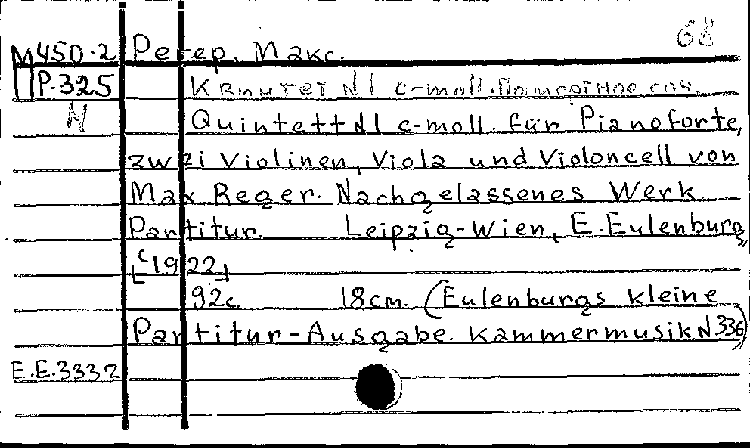 68
М450-2 Регер, Макс.
Р-325 Квинтет №1 c-moll. Посмертное соч.
N Quintett №1 c-moll für Pianoforte,
zwei Violinen, Viola und Violoncell von
Max Reger. Nachgelassenes Werk
Partitur. Leipzig-Wien, E. Eulenburg,
[c1922]
92c. 18cm. (Eulenburgs kleine
Partitur-Ausgabe. Kammermusik N.336)
E.E.3332